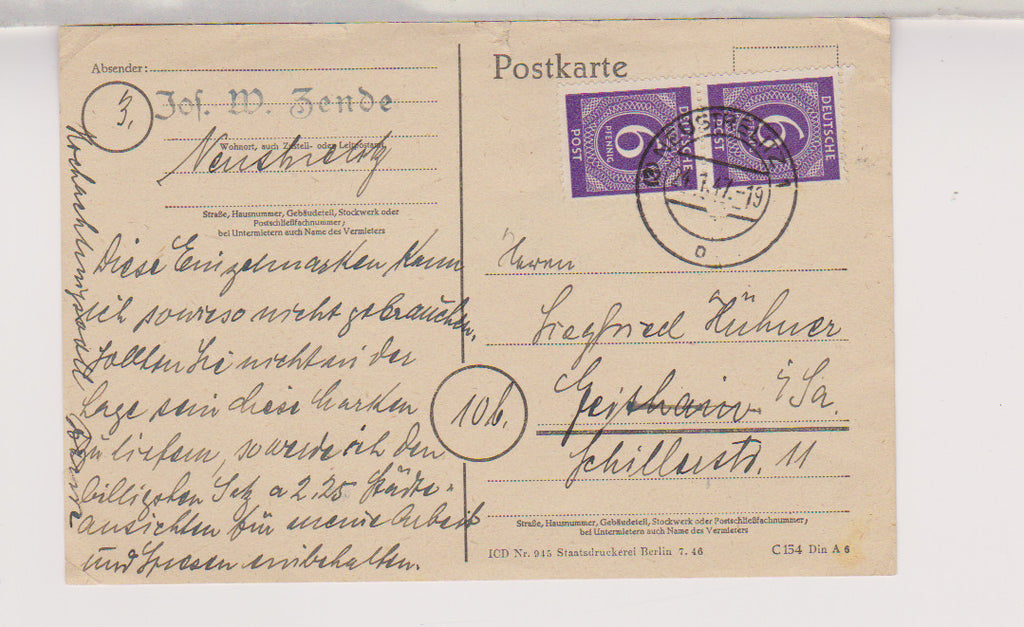 Absender:
3.
Jos. W. Zende
Wohnort, auch Zustell- oder Leitpostamt
Neustrelitz
Straße, Hausnummer, Gebäudeteil, Stockwerk oder
Postschließfachnummer;
bei Untermietern auch Name des Vermieters
Diese Einzelmarken kann
ich sowieso nicht gebrauchen.
Sollten Sie nicht in der
Lage sein diese Marken
zu liefern, so werde ich den
billigsten Satz a 2,25 Städte-
ansichten für meine Arbeit
und Spesen einbehalten.
Hochachtungsvoll
Postkarte
DEUTSCHE
POST
6
PFENNIG
DEUTSCHE
POST
6
NEUSTRELITZ 1
1.47.-19
Herrn
Siegfried Hühner
10b.
Geithain i/Sa.
Schillerstr. 11
Straße, Hausnummer, Gebäudeteil, Stockwerk oder Postschließfachnummer;
bei Untermietern auch Name des Vermieters
ICD Nr. 945 Staatsdruckerei Berlin 7. 46
C154 Din A 6